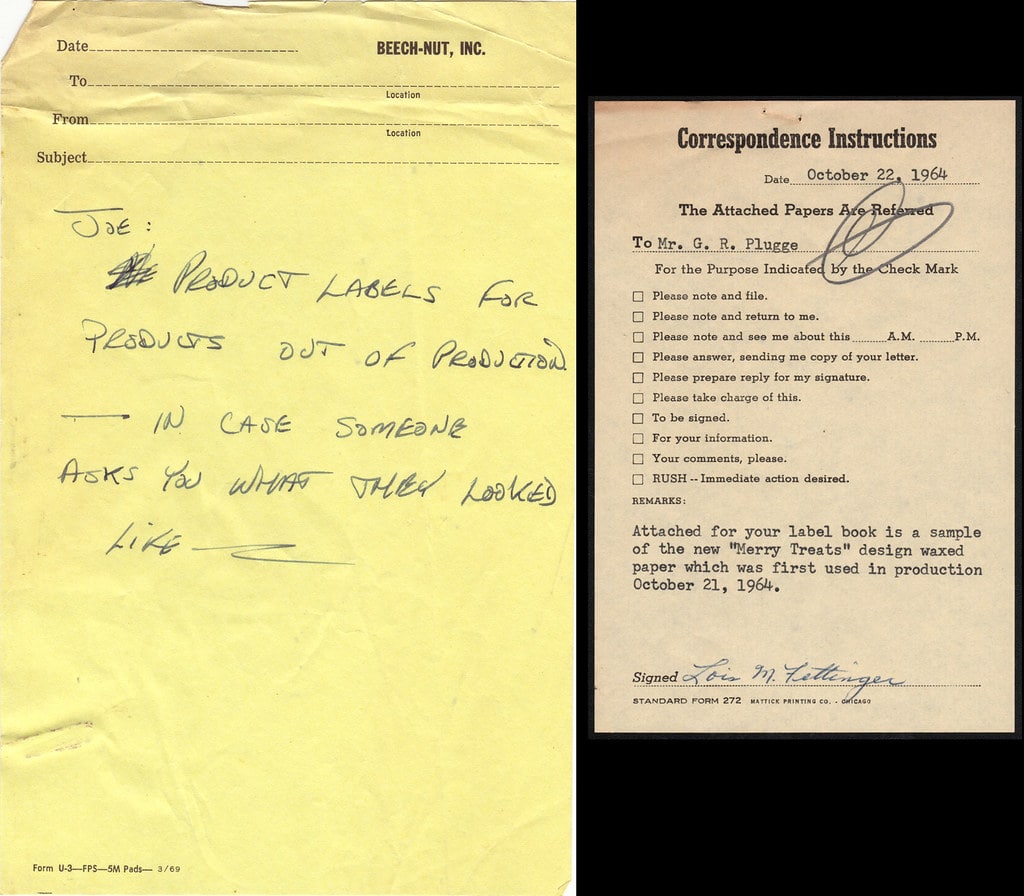 Date
BEECH-NUT, INC.
To
Location
From
Location
Subject
JOE:
PRODUCT LABELS FOR
PRODUCTS OUT OF PRODUCTION
— IN CASE SOMEONE
ASKS YOU WHAT THEY LOOKED
LIKE —
Form U-3—FPS—5M Pads— 3/69
Correspondence Instructions
Date October 22, 1964
The Attached Papers Are Referred
To Mr. G. R. Plugge
For the Purpose Indicated by the Check Mark
☐ Please note and file.
☐ Please note and return to me.
☐ Please note and see me about this ........ A.M. ........ P.M.
☐ Please answer, sending me copy of your letter.
☐ Please prepare reply for my signature.
☐ Please take charge of this.
☐ To be signed.
☐ For your information.
☐ Your comments, please.
☐ RUSH -- Immediate action desired.
REMARKS:
Attached for your label book is a sample
of the new "Merry Treats" design waxed
paper which was first used in production
October 21, 1964.
Signed Lois M. Fettinger
STANDARD FORM 272 MATTICK PRINTING CO. - CHICAGO